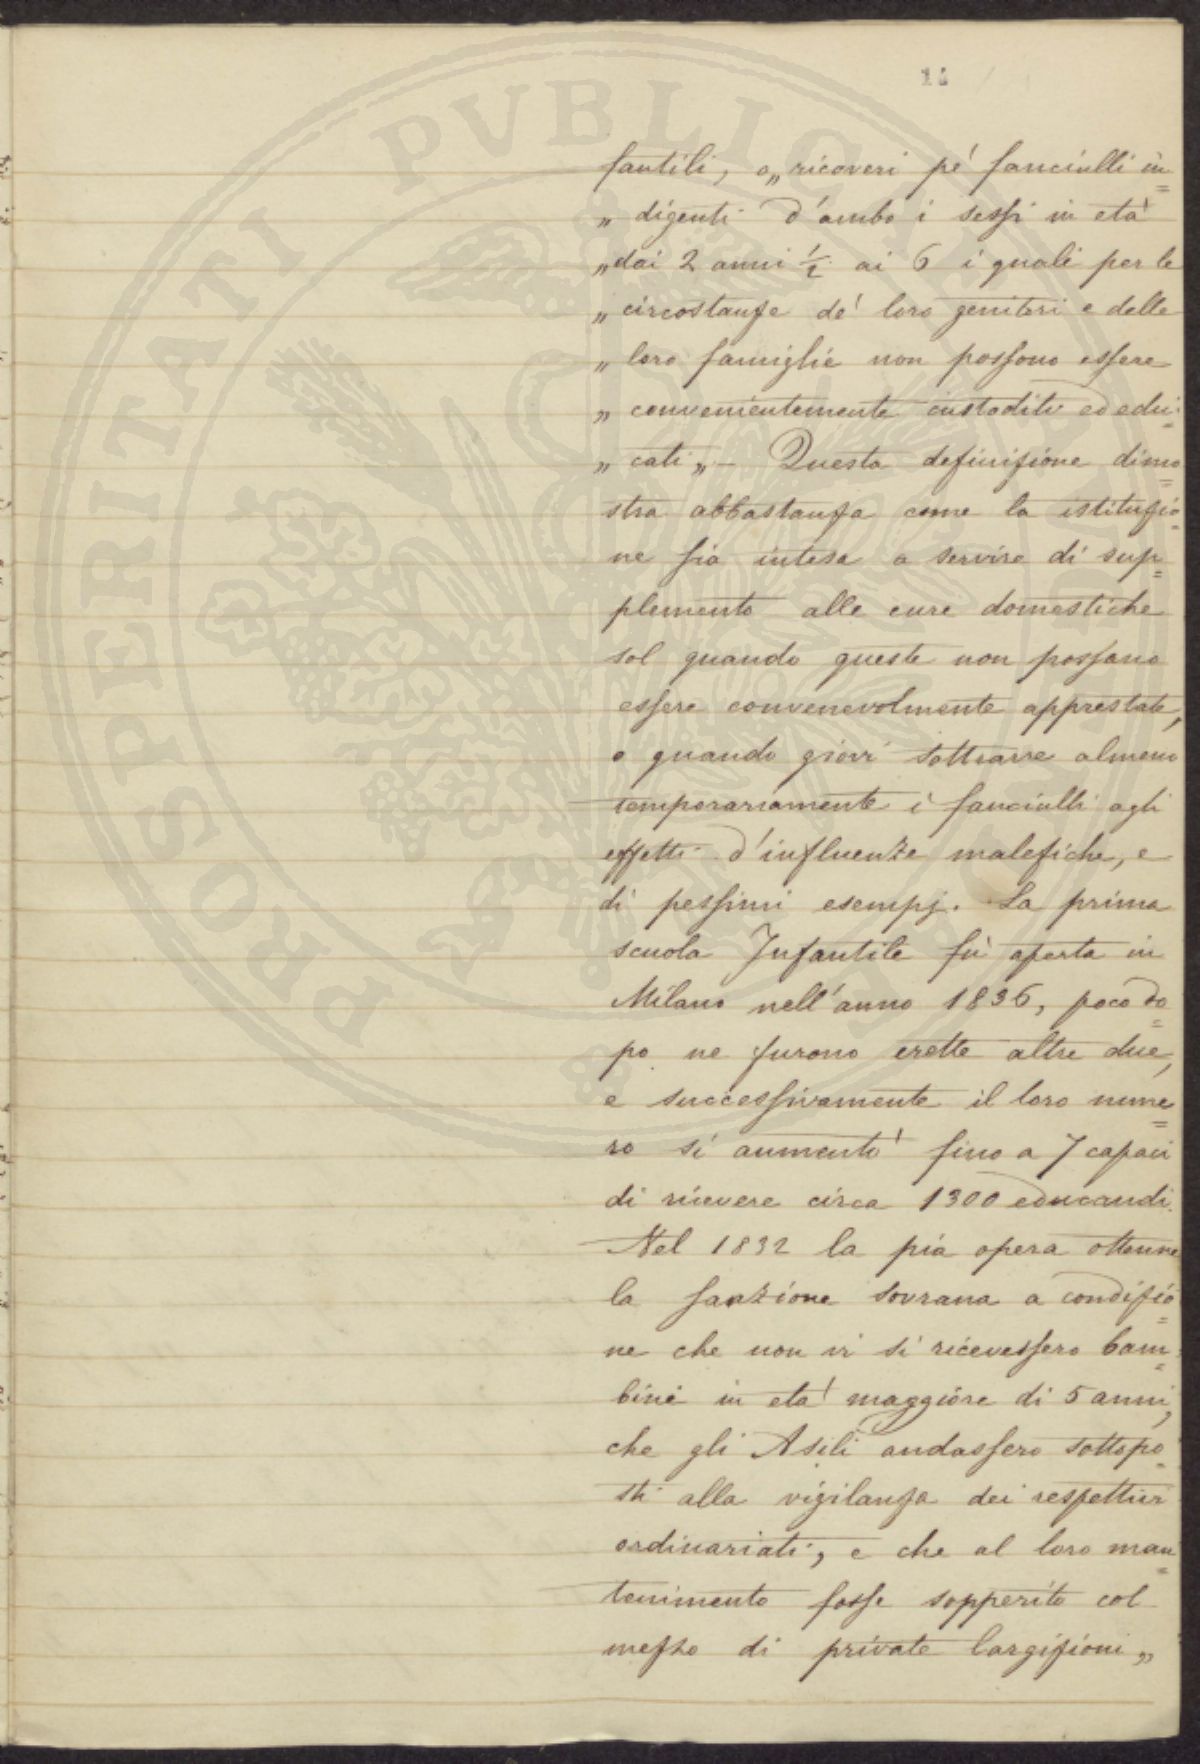 14
fantili, o „ ricoveri pe' fanciulli in=
„ digenti d'ambo i sessi in età
„ dai 2 anni ½ ai 6 i quali per le
„ circostanze de' loro genitori e delle
„ loro famiglie non possono essere
„ convenientemente custoditi ed edu=
„ cati „ – Questa definizione dimo=
stra abbastanza come la istituzio=
ne sia intesa a servire di sup=
plemento alle cure domestiche
sol quando queste non possano
essere convenevolmente apprestate,
o quando giovi sottrarre almeno
temporariamente i fanciulli agli
effetti d'influenze malefiche, e
di pessimi esempj. La prima
scuola Infantile fù aperta in
Milano nell'anno 1836, poco do=
po ne furono erette altre due,
e successivamente il loro nume=
ro si aumentò fino a 7 capaci
di ricevere circa 1300 educandi.
Nel 1832 la pia opera ottenne
la sanzione sovrana a condizio=
ne che non vi si ricevessero bam=
bini in età maggiore di 5 anni,
che gli Asili andassero sottopo=
sti alla vigilanza dei respettivi
ordinariati, e che al loro man=
tenimento fosse sopperito col
mezzo di private largizioni „
PROSPERITATI PVBLICAE